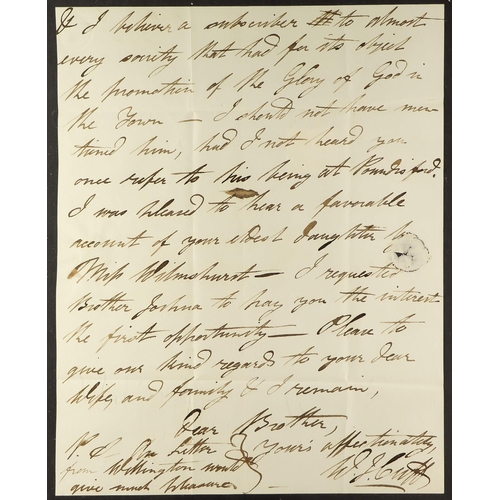 & I believe a subscriber to almost
every society that had for its object
the promotion of the Glory of God in
the Town — I should not have men
tioned him, had I not heard you
once refer to his being at Poundisford.
I was pleased to hear a favorable
account of your eldest daughter by
Miss Wilmshurst — I requested
Brother Joshua to pay you the interest
the first opportunity — Please to
give our kind regards to your dear
Wife, and family & I remain,
Dear Brother,
Yours affectionately,
W. J. Cuff
P. S. letter
from Wellington would
give much pleasure